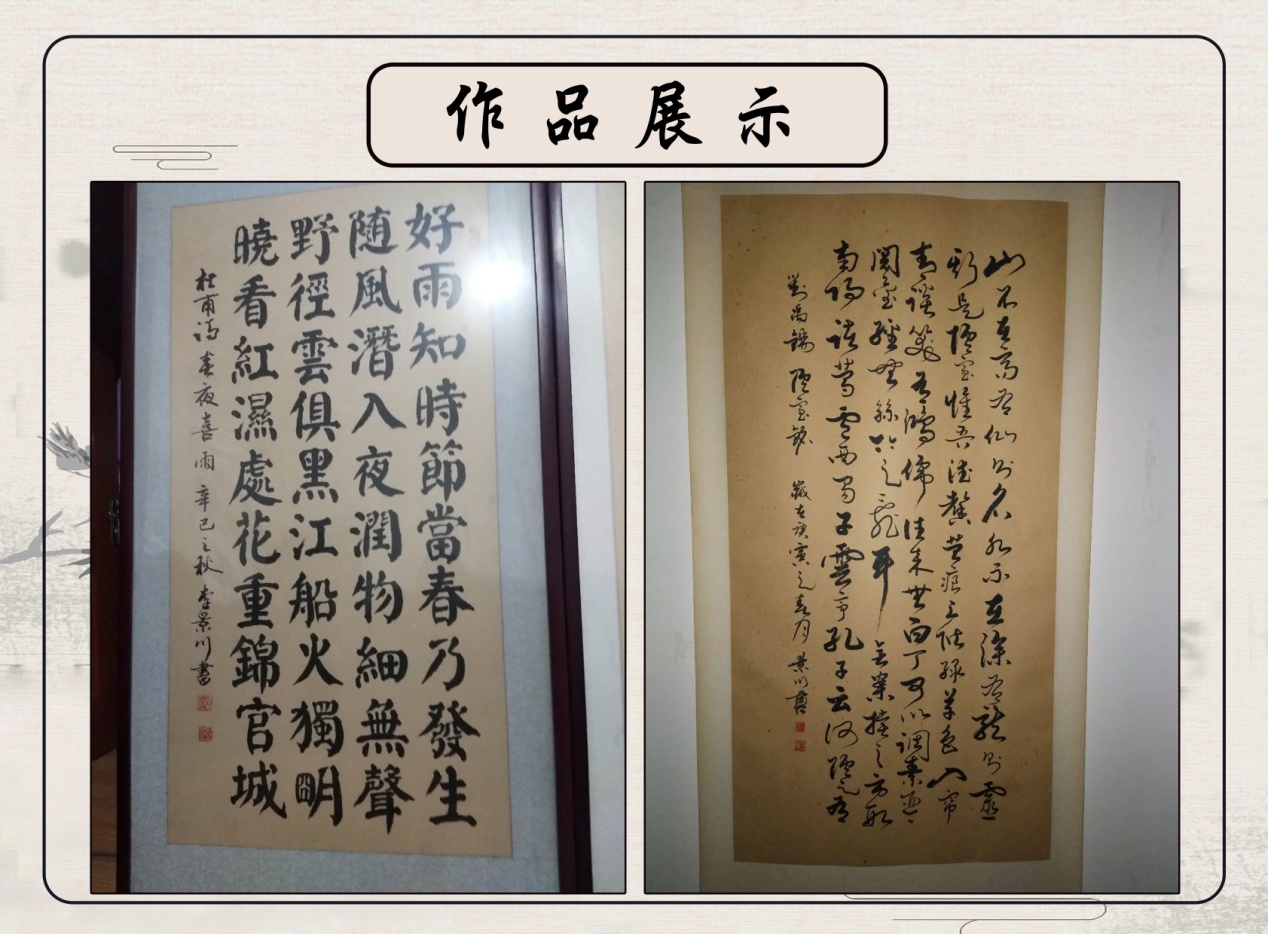 作品展示
好雨知時節當春乃發生
随風潛入夜潤物細無聲
野徑雲俱黑江船火獨明
曉看紅濕處花重錦官城
杜甫詩春夜喜雨 辛巳之秋 李景川書
山不在高有仙則名水不在深有龍則靈
斯是陋室惟吾德馨苔痕上階綠草色入帘
青談笑有鴻儒往來無白丁可以調素琴
閱金經無絲竹之亂耳無案牘之勞形
南陽諸葛廬西蜀子雲亭孔子云何陋之有
劉禹錫 陋室銘 歲在庚寅之春月 景川書